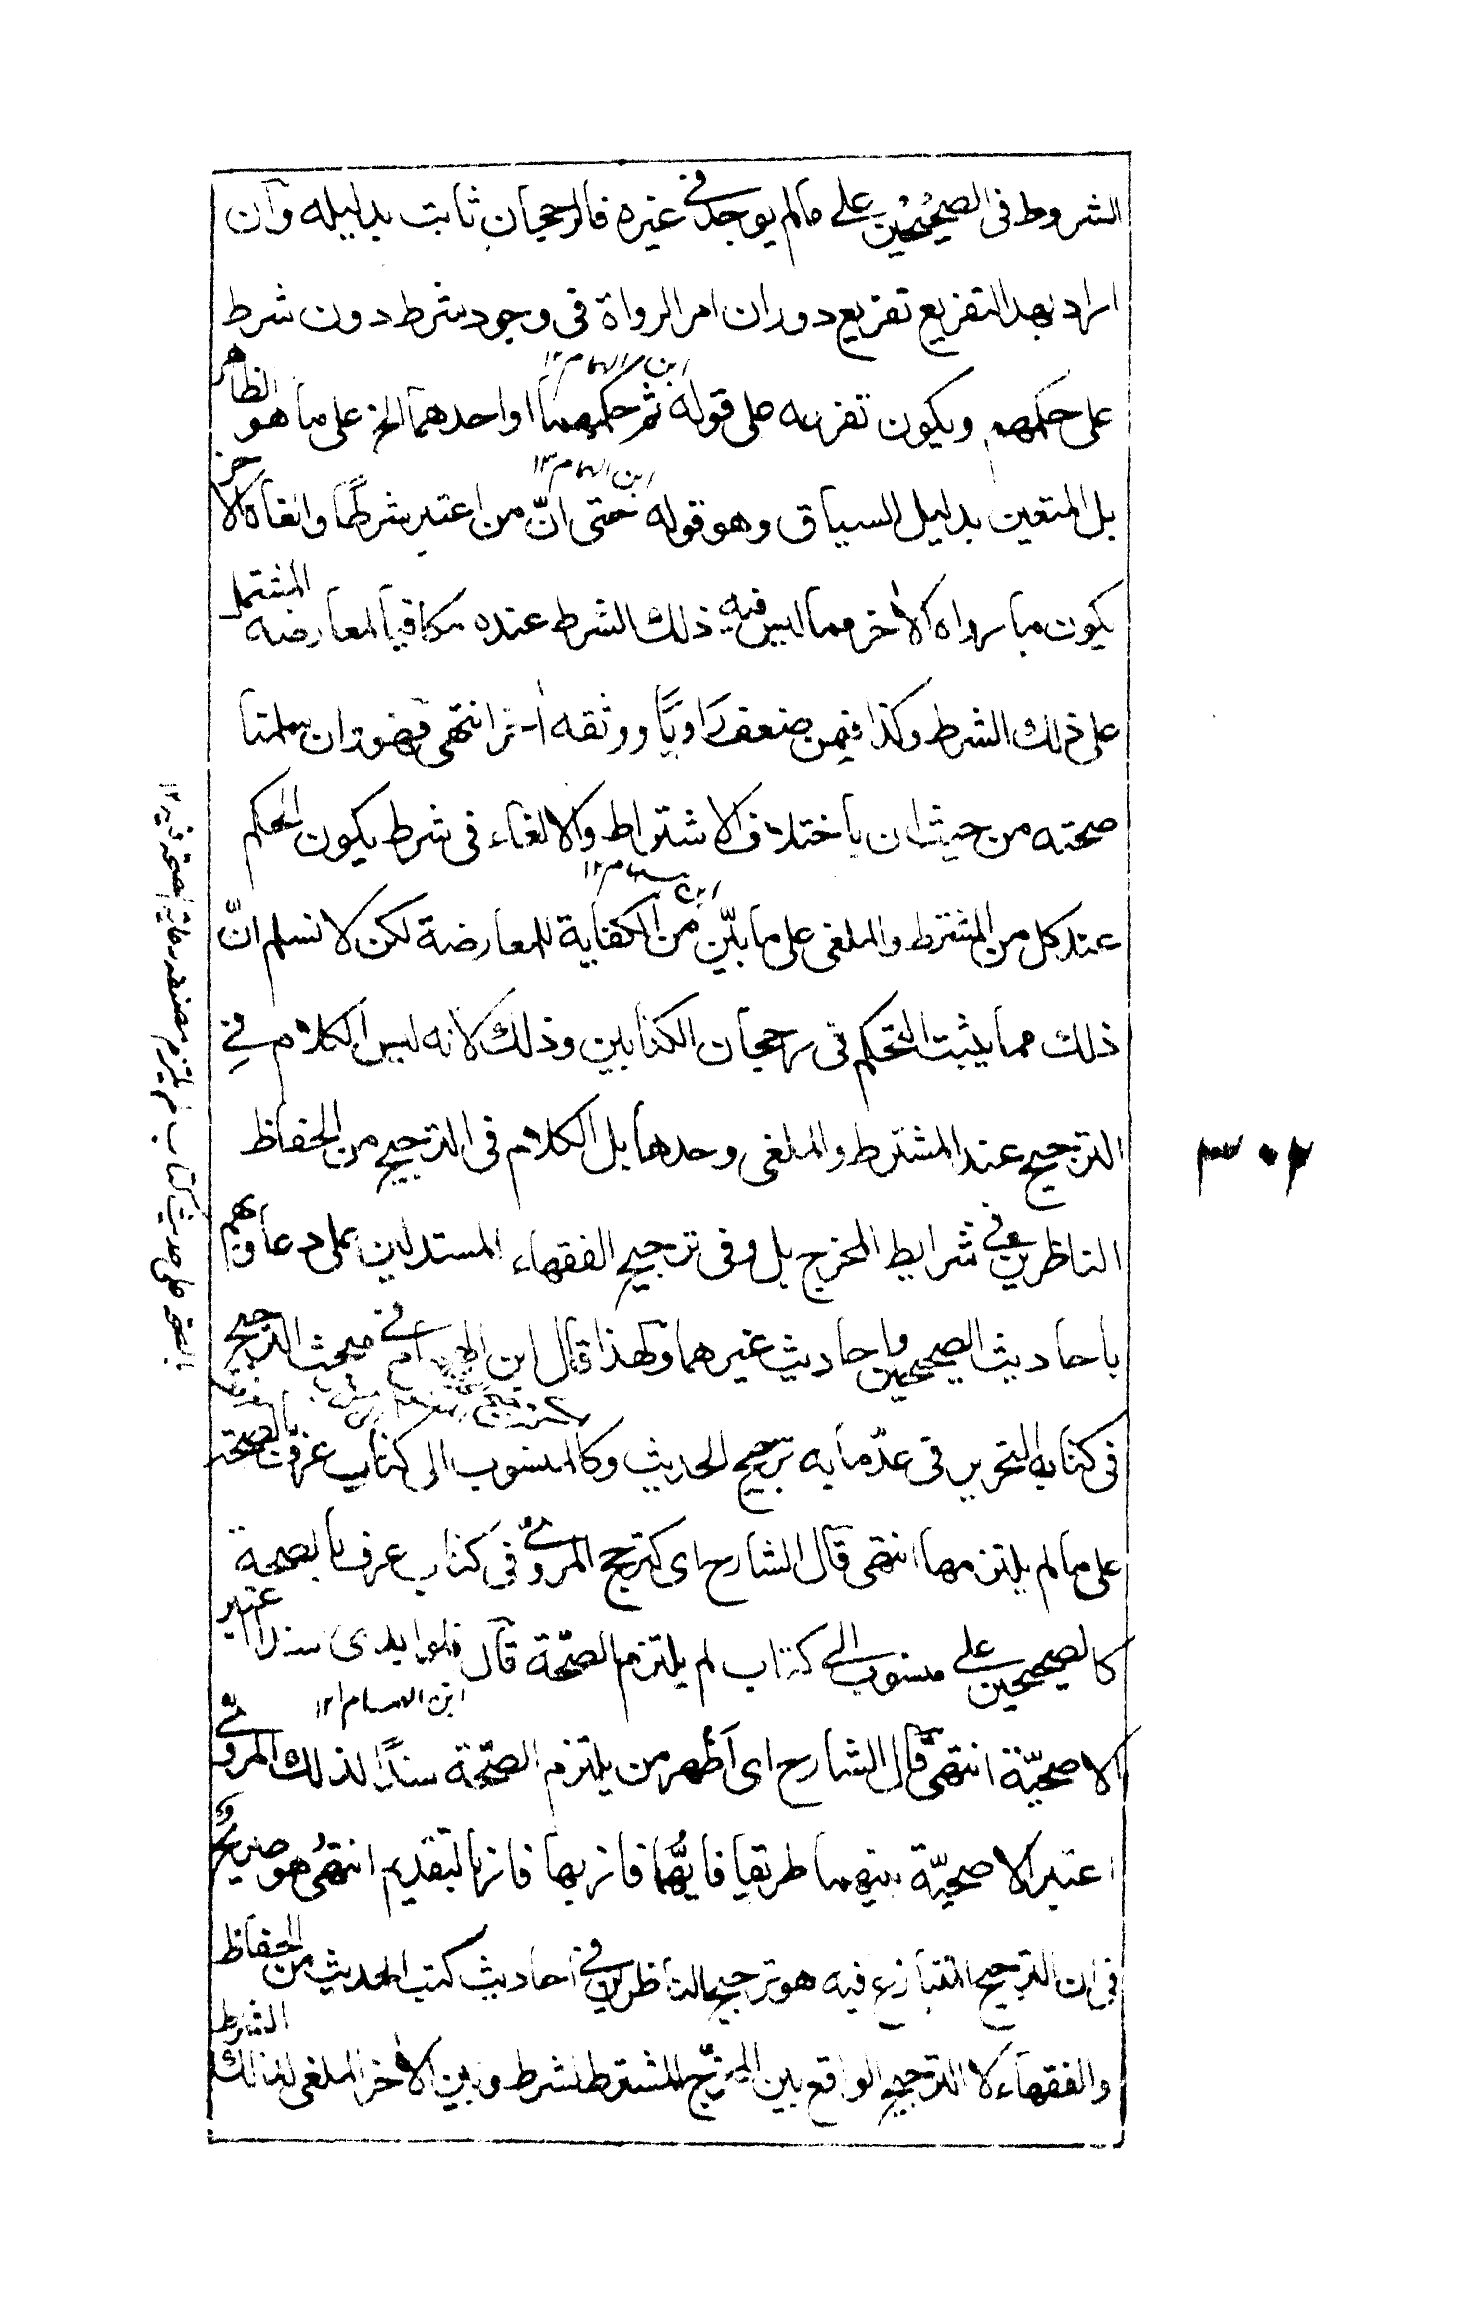 الشروط فى الصحيحين على مالم يوجد فى غيره فالرجحان ثابت بدليله وآن
اراد بهذا التفريع تفريع دوران امر الرواة فى وجود شرط دون شرط
على حكمهم ويكون تفريعه على قوله ثم حكمهما او احدهما الخ على ما هو الظاهر
ابن الهمام ١٢
بل المتعين بدليل السياق وهو قوله حتى انّ من اعتبر شرطًا والغاه الاخر
ابن الهمام ١٢
يكون ما رواه الاخر مما ليس فيه ذلك الشرط عنده مكافيا لمعارضه المشتمل
على ذلك الشرط وكذا فيمن ضعف راويًا ووثقه اخر انتهى فهو وان سلمنا
صحته من حيث ان باختلاف الاشتراط والالغاء فى شرط يكون الحكم
عند كل من المشترط والملغى على ما بيّن من الكفاية للمعارضة لكن لا نسلم انّ
ابن همام ١٢
ذلك مما يثبت التحكم فى رجحان الكتابين وذلك لانه ليس الكلام فى
الترجيح عند المشترط والملغى وحدها بل الكلام فى الترجيح من الحفاظ
٣٠٢
الناظرين فى شرايط المخرج بل وفى ترجيح الفقهاء المستدلين على دعاويهم
باحاديث الصحيحين واحاديث غيرهما ولهذا قال ابن الهمام فى مبحث الترجيح
فى كتابه التحرير فى عدّ ما به ترجيح الحديث وكالمنسوب الى كتاب عرف بالصحة
على ما لم يلتزمها انتهى قال الشارح اى كترجيح المروى فى كتاب عرف بالصحة
كالصحيحين على منسوب الى كتاب لم يلتزم الصّحة قال فلو ابدى سندا اعتبر
ابن الهمام ١٢
الاصحيّة انتهى قال الشارح اى اظهر من يلتزم الصّحة سندًا لذلك المروى
اعتبر الاصحيّة بينهما طريقا فايّهما فاز بها فاز بالتقديم انتهى وهو صريح
فى ان الترجيح المتنازع فيه هو ترجيح الناظرين فى احاديث كتب الحديث من الحفاظ
والفقهاء لا الترجيح الواقع بين المخرّج المشترط لشرط وبين الاخر الملغى لذلك الشرط